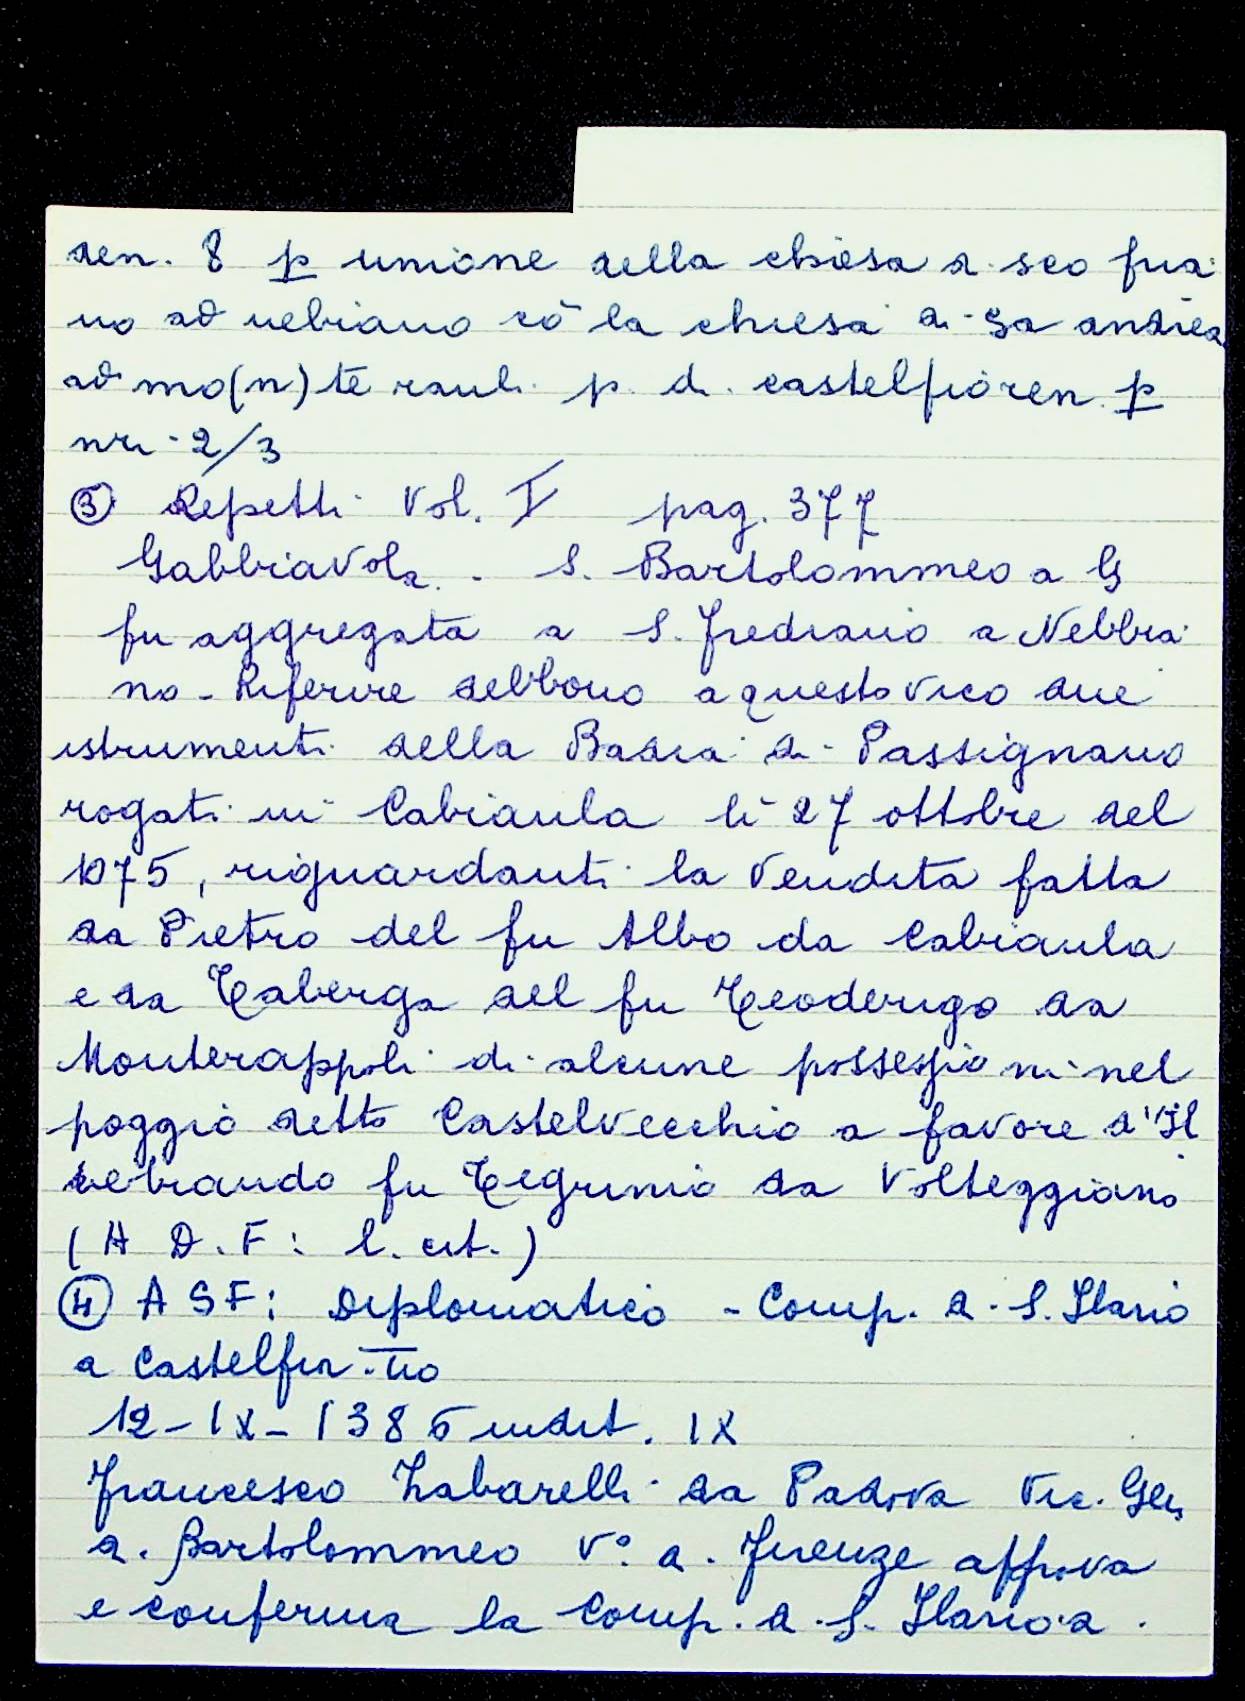 den. 8 p unione della chiesa d. sco fria
no ad nebiano cō la chiesa di Sa andrea
ad mo(n)te rauli p. di castelfioren. p
nri 2/3
③ Repetti Vol. V pag. 377
Gabbiavola - S. Bartolommeo a G
fu aggregata a S. Frediano a Nebbia
no - Riferire debbono a questo vico due
istrumenti della Badia di Passignano
rogati in Cabiaula lì 27 ottobre del
1075, riguardanti la vendita fatta
da Pietro del fu Albo da Cabiaula
e da Teberga del fu Teoderigo da
Monterappoli di alcune possessioni nel
poggio detto Castelvecchio a favore d'Il
debrando fu Tegrimio da Volteggiano
(A D. F: l. cit.)
④ A S F: Diplomatico - Comp. d. S. Ilario
a Castelfior.no
12-IX-1385 indit. IX
Francesco Zabarelli da Padova Vic. Gen.
d. Bartolommeo Vº. d. Firenze approva
e conferma la Comp. d. S. Ilario a